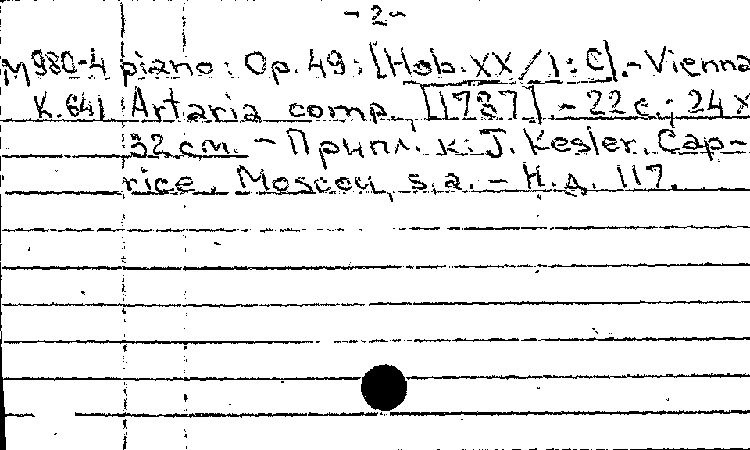 - 2 -
М980-4 piano: Op. 49: [Hob. XX/1: C]. - Vienna
К.641 Artaria comp., [1787]. - 22 с.; 24 x
32 см. - Припл. к: J. Kesler. Cap-
rice. Moscou, s.a. - Н.д. 117.